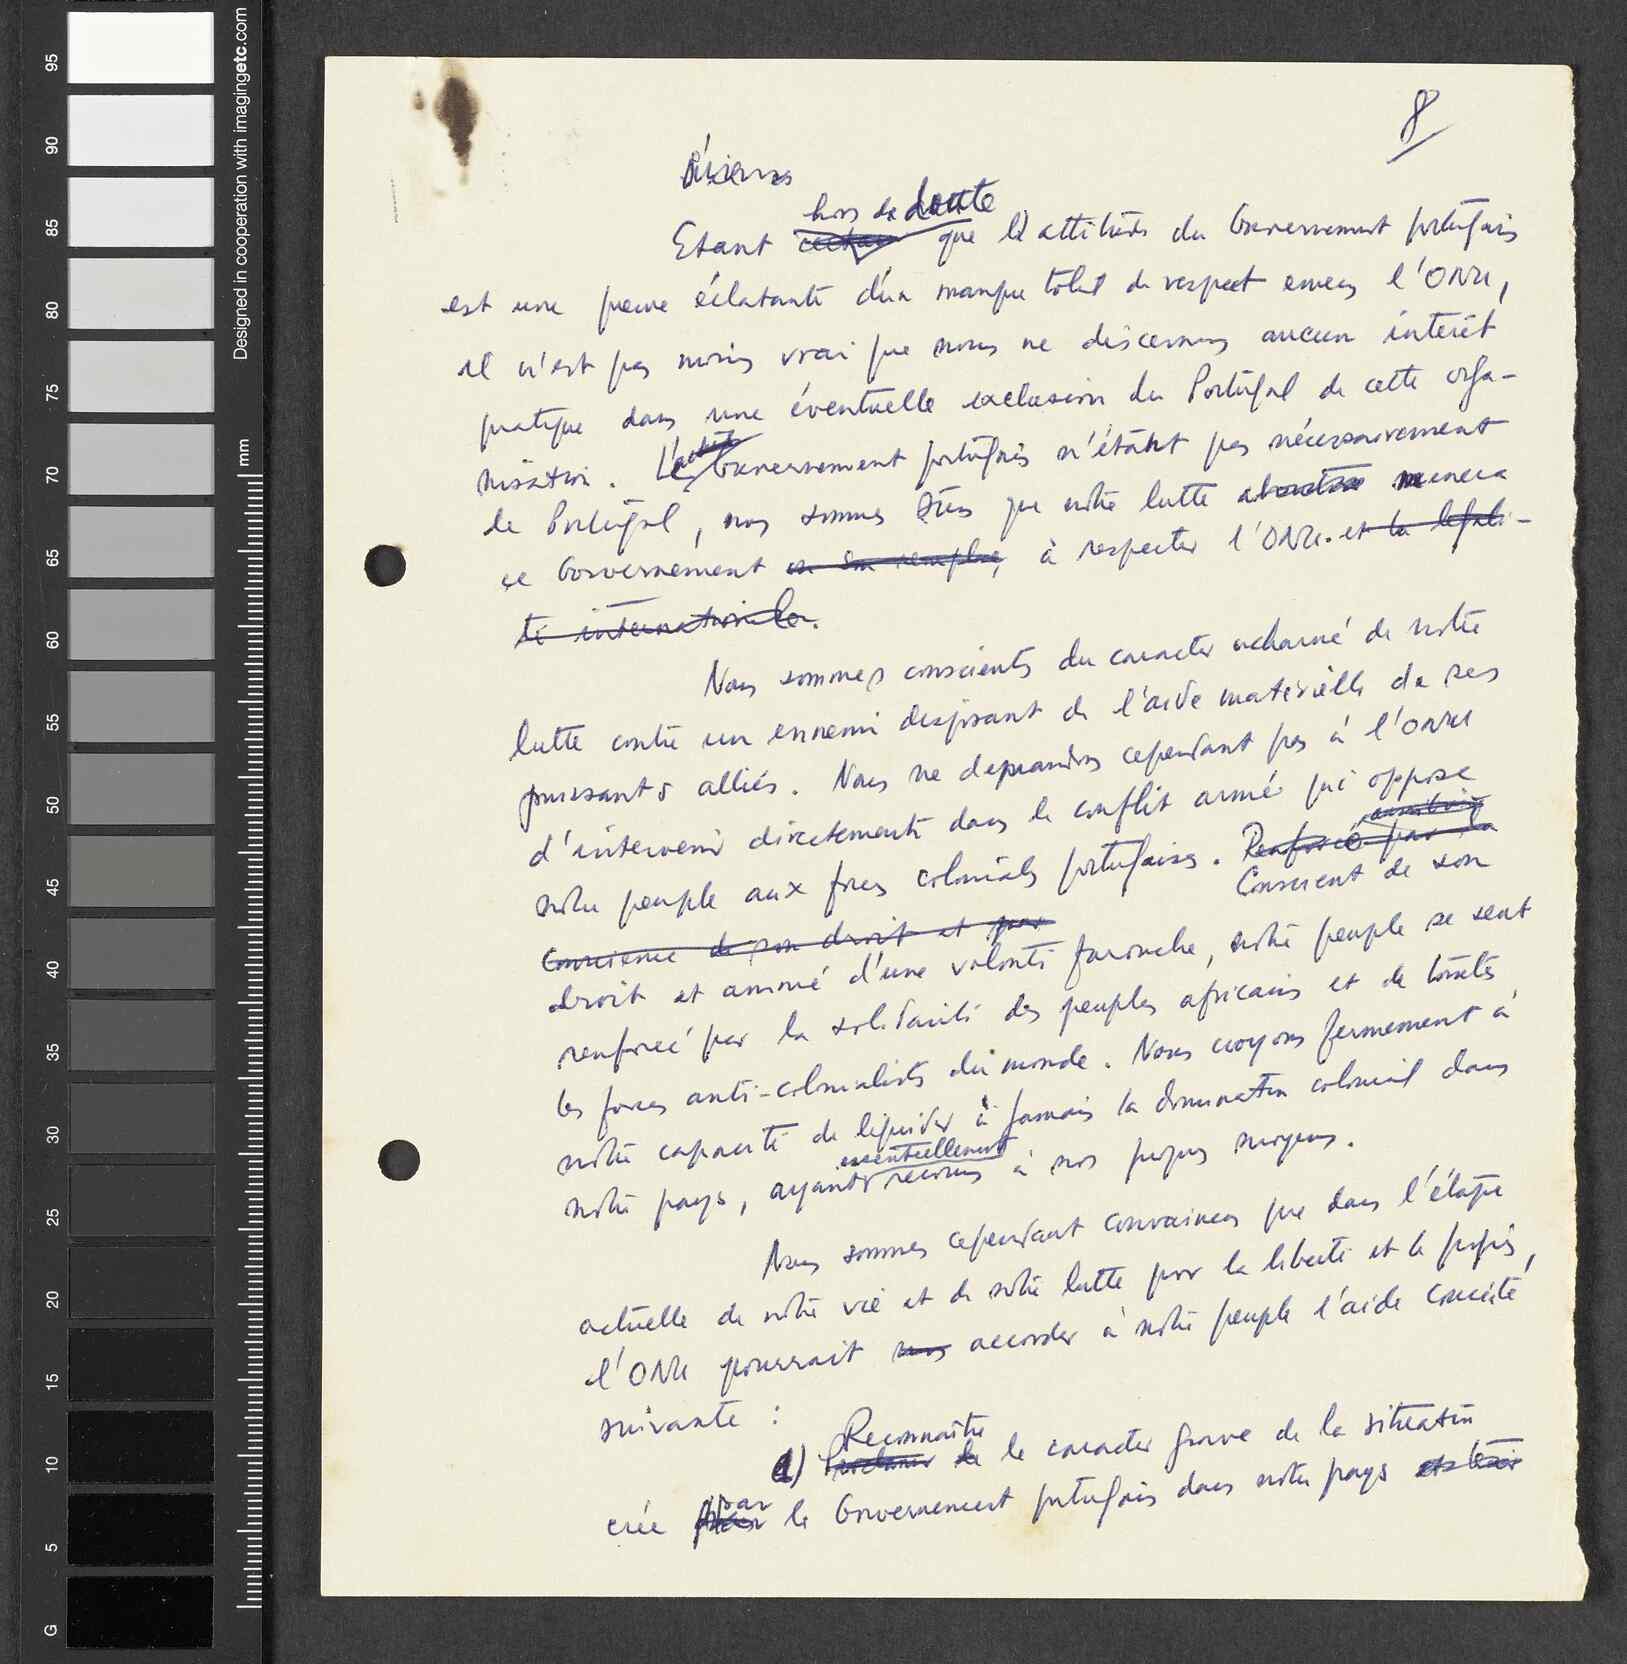 8
hors de doute
Etant certain que l'attitude du Gouvernement portugais
est une preuve éclatante d'un manque total de respect envers l'ONU,
il n'est pas moins vrai que nous ne discernons aucun intérêt
pratique dans une éventuelle exclusion du Portugal de cette orga-
nisation. Le Gouvernement portugais n'étant pas nécessairement
le Portugal, nous sommes sûrs que notre lutte menera
ce Gouvernement à respecter l'ONU. et la légali-
té internationale.
Nous sommes conscients du caracter acharné de notre
lutte contre un ennemi disposant de l'aide matérielle de ses
puissants alliés. Nous ne demandons cependant pas à l'ONU
d'intervenir directement dans le conflit armé qui oppose
notre peuple aux forces coloniales portugaises. Renforcé par la
Conscient de son
conscience de son droit et par
droit et animé d'une volonté farouche, notre peuple se sent
renforcé par la solidarité des peuples africains et de toutes
les forces anti-colonialistes du monde. Nous croyons fermement à
notre capacité de liquider à jamais la domination colonial dans
essentiellement
notre pays, ayant recours à nos propres moyens.
Nous sommes cependant convaincus que dans l'étape
actuelle de notre vie et de notre lutte pour la liberté et le progrès,
l'ONU pourrait nous accorder à notre peuple l'aide concrète
suivante :
Reconnaître
a) le caracter grave de la situation
par
crée le Gouvernement portugais dans notre pays
Designed in cooperation with imagingetc.com
mm
95
90
85
80
75
70
65
60
55
50
45
40
35
30
25
20
15
10
5
G